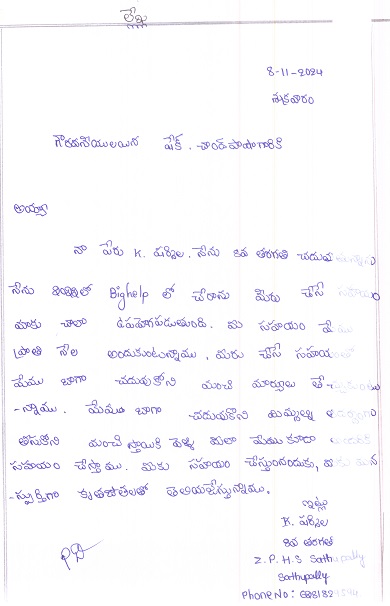 లేఖ
8-11-2024
శుక్రవారం
గౌరవనీయులయిన షేక్. చాంద్ పాషా గారికి
అయ్యా
నా పేరు K. షర్మిల. నేను 8వ తరగతి చదువుతున్నాను
నేను Bighelp లో చేరాను మీరు చేసే సహాయం
మాకు చాలా ఉపయోగపడుతుంది. మీ సహాయం మేము
ప్రతి నెల అందుకుంటున్నాము, మీరు చేసే సహాయంతో
మేము బాగా చదువుకొని మంచి మార్కులు తెచ్చుకుంటు
-న్నాము. మేము బాగా చదువుకొని మిమ్మల్ని ఆదర్శంగా
తీసుకొని మంచి స్థాయికి వెళ్ళి మీలా మేము కూడా
సహాయం చేస్తాము. మీకు సహాయం చేస్తున్నందుకు,
-స్ఫూర్తిగా కృతజ్ఞతలతో తెలియజేస్తున్నాము.
ఇట్లు
K. షర్మిల
8వ తరగతి
Z.P.H.S Sathupally
Sathupally
Phone No: